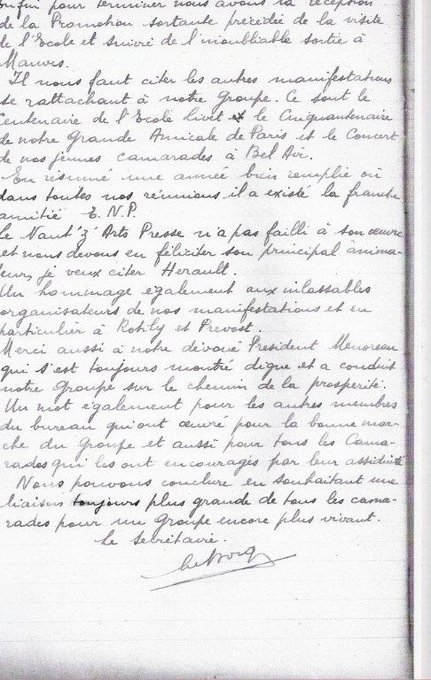 enfin pour terminer nous avons la réception
de la Promotion sortante précédée de la visite
de l'Ecole et suivie de l'inoubliable sortie à
Mauves.
Il nous faut citer les autres manifestations
se rattachant à notre Groupe. Ce sont le
Centenaire de l'Ecole Livet et le Cinquantenaire
de notre Grande Amicale de Paris et le Concert
de nos jeunes camarades à Bel Air.
En résumé une année bien remplie où
dans toutes nos réunions il a existé la franche
amitié E.N.P.
Le Nant'z'Arts Presse n'a pas failli à son œuvre
et nous devons en féliciter son principal anima-
teur, je veux citer Herault.
Un hommage également aux inlassables
organisateurs de nos manifestations et en
particulier à et Prevost.
Merci aussi à notre dévoué Président Menoreau
qui s'est toujours montré digne et a conduit
notre Groupe sur le chemin de la prosperité.
Un mot également pour les autres membres
du bureau qui ont œuvré pour la bonne mar-
che du Groupe et aussi pour tous les Cama-
rades qui les ont encouragés par leur assiduité
Nous pouvons conclure en souhaitant une
liaison toujours plus grande de tous les cama-
rades pour un Groupe encore plus vivant.
Le Secrétaire.